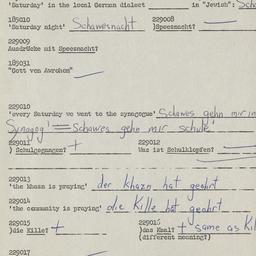 'Saturday' in the local German dialect in "Jewish":
185010 229008
'Saturday night' Schawesnacht )Speeznacht?
229009
Ausdrücke mit Speeznacht?
185031
"Gott von Awrohom"
229010
'every Saturday we went to the synagogue' Schawes gehn mir in
Synagog' = Schawes gehn mir schule
229011 229012
) Schulgegangen? + Was ist Schulklopfen?
229013
'the khazn is praying' der khazn hat georht
229014
'the community is praying' die Kille hat georht
229015 229016
)die Kille? + )das Kaal? + same as Kil
(different meaning?)
229017